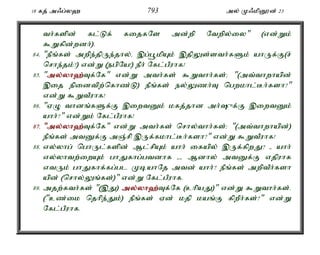 18 கத் அஃப்லஹ 793 அல் முஃமினூன் 23
வர்களின் கட்டுக் கதைகளே அன்றி வேறில்லை" (என்றும்
கூறுகின்றனர்).
84. "நீங்கள் அறிந்திருந்தால், இப்பூமியும் இதிலுள்ளவர்களும் யாருக்கு(ச்
சொந்தம்?) என்று (நபியே!) நீர் கேட்பீராக!
85. "அல்லாஹ்வுக்கே" என்று அவர்கள் கூறுவார்கள்; "(அவ்வாறாயின்
இதை நினைவிற்கொண்டு) நீங்கள் நல்லுணர்வு பெறமாட்டீர்களா?"
என்று கூறுவீராக!
86. "ஏழு வானங்களுக்கு இறைவனும் மகத்தான அர்ஷுக்கு இறைவனும்
யார்?" என்றும் கேட்பீராக!
87. "அல்லாஹ்வுக்கே" என்று அவர்கள் சொல்வார்கள்: "(அவ்வாறாயின்)
நீங்கள் அவனுக்கு அஞ்சி இருக்கமாட்டீர்களா?" என்று கூறுவீராக!
88. எல்லாப் பொருட்களின் ஆட்சியும் யார் கையில் இருக்கிறது? - யார்
எல்லாவற்றையும் பாதுகாப்பவனாக ... ஆனால் அவனுக்கு எதிராக
எவரும் பாதுகாக்கப்பட முடியாதே அவன் யார்? நீங்கள் அறிவீர்களா
யின் (சொல்லுங்கள்)" என்று கேட்பீராக.
89. அதற்கவர்கள் "(இது) அல்லாஹ்வுக்கே (உரியது)" என்று கூறுவார்கள்.
("உண்மை தெரிந்தும்) நீங்கள் ஏன் மதி மயங்கு கிறீர்கள்?" என்று
கேட்பீராக.